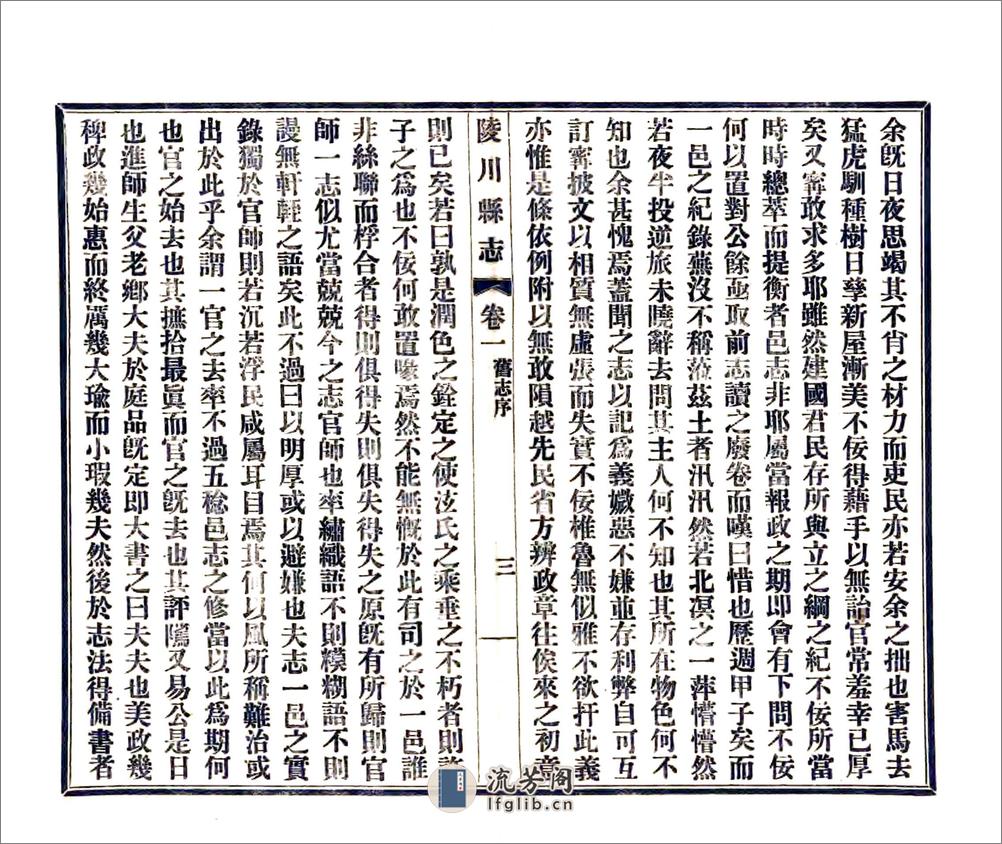 余旣日夜思竭其不肖之材力而吏民亦若安余之拙也害馬去
猛虎馴種樹日孳新屋漸美不佞得藉手以無詒官常羞幸已厚
矣又寗敢求多耶雖然建國君民存所與立之綱之紀不佞所當
時時總萃而提衡者邑志非耶屬當報政之期即會有下問不佞
何以置對公餘亟取前志讀之廢卷而嘆曰惜也歷週甲子矣而
一邑之紀錄蕪沒不稱蒞茲土者汛汛然若北溟之一萍懵懵然
若夜半投逆旅未曉辭去問其主人何不知也其所在物色何不
知也余甚愧焉蓋聞之志以記爲義媺惡不嫌並存利弊自可互
訂寗披文以相質無虛張而失實不佞椎魯無似雅不欲扞此義
亦惟是條依例附以無敢隕越先民省方辨政章往俟來之初意
陵川縣志 卷一 舊志序 三
則已矣若曰孰是潤色之銓定之使汝氏之乘垂之不朽者則
子之爲也不佞何敢置喙焉然不能無慨於此有司之於一邑誰
非絲聯而桴合者得則俱得失則俱失得失之原旣有所歸則官
師一志似尤當兢兢今之志官師也率繡織語不則糢糊語不則
謾無軒輊之語矣此不過曰以明厚或以避嫌也夫志一邑之實
錄獨於官師則若沉若浮民咸屬耳目焉其何以風所稱難治或
出於此乎余謂一官之去率不過五稔邑志之修當以此爲期何
也官之始去也其摭拾最眞而官之旣去也其評隲又易公是日
也進師生父老鄉大夫於庭品旣定即大書之曰夫夫也美政幾
稗政幾始惠而終厲幾大瑜而小瑕幾夫然後於志法得備書者
流芳閣
lfglib.cn